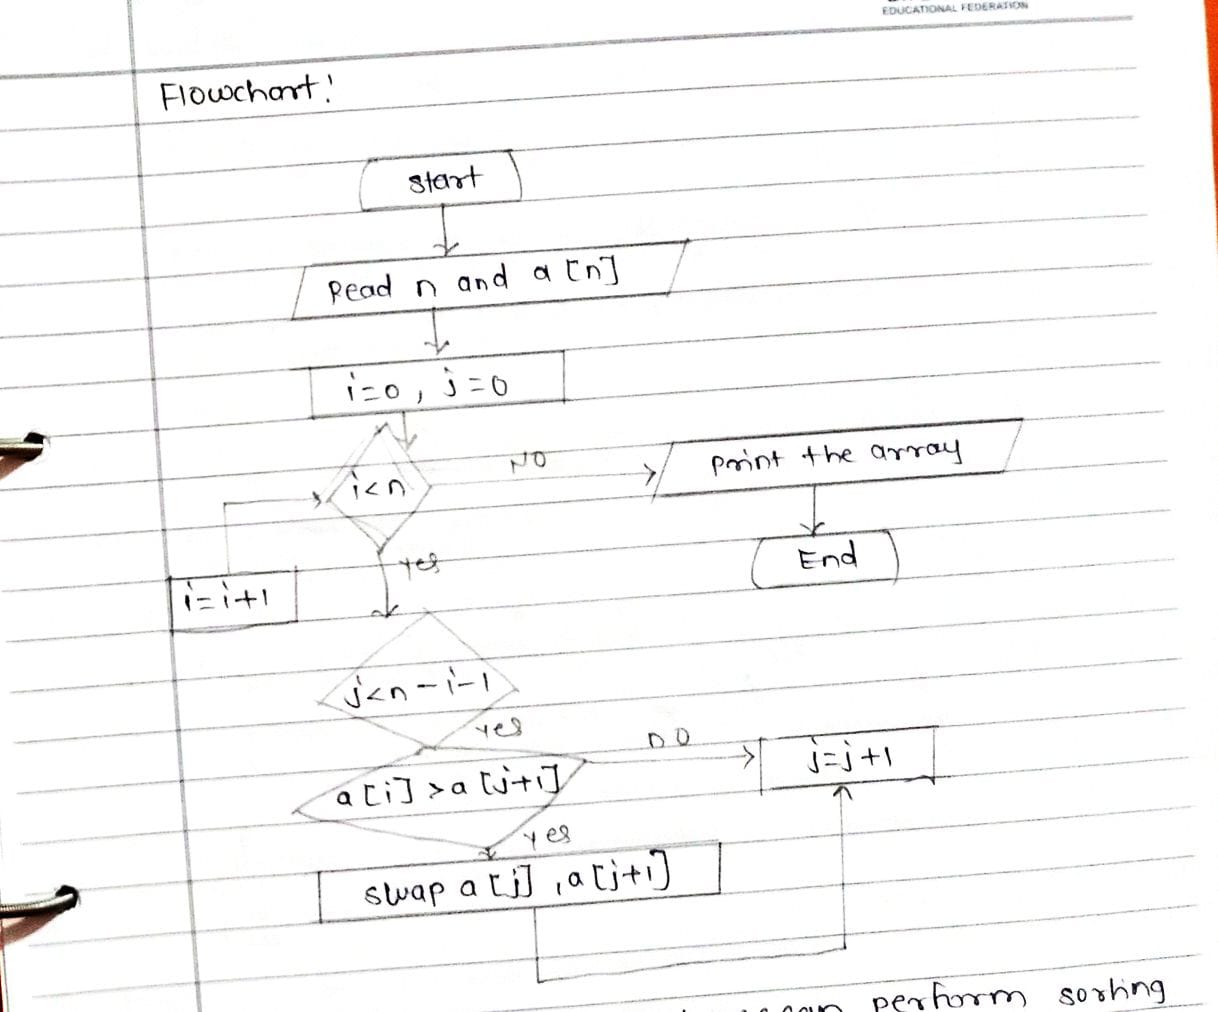 EDUCATIONAL FEDERATION
Flowchart!
start
Read n and a [n]
i=0, j=0
i<n
NO
print the array
yes
End
i=i+1
j<n-i-1
yes
a[i]>a[j+1]
no
j=j+1
yes
swap a[j], a[j+1]
perform sorting